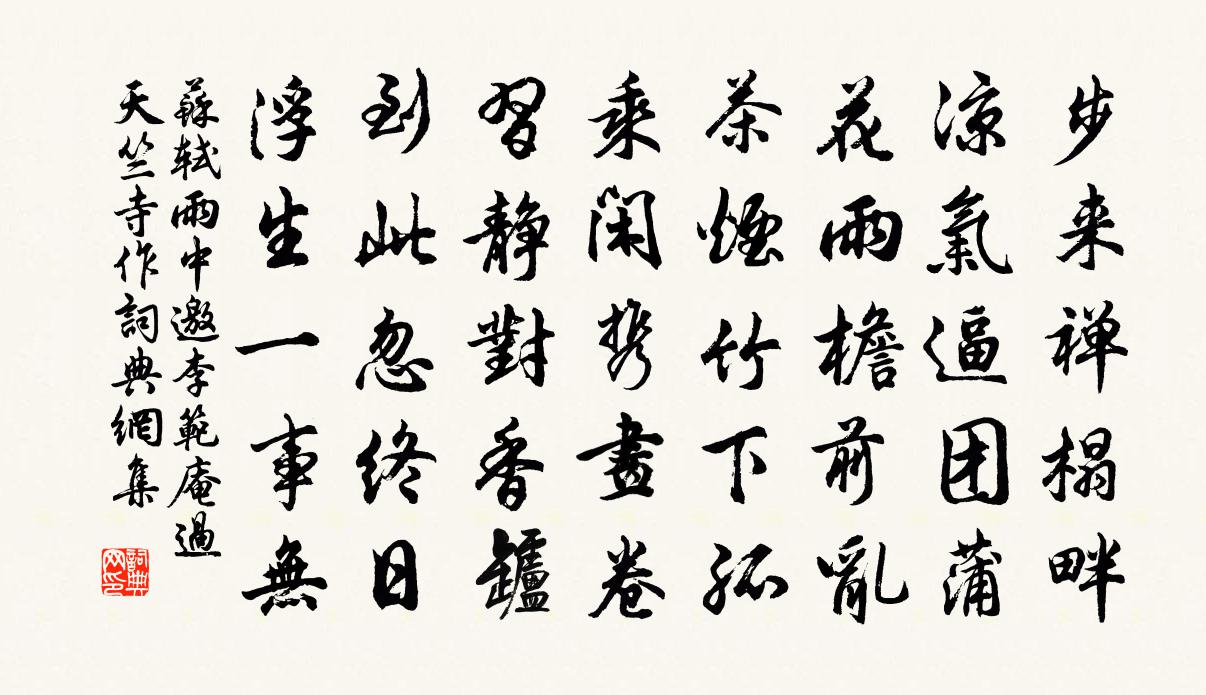 步来禅榻畔
涼氣逼团蒲
花雨檐前亂
茶煙竹下孤
乘閑携畫卷
習靜對香鑪
到此忽终日
浮生一事無
蘇軾雨中邀李範庵過
天竺寺作詞典網集
詞典
网印